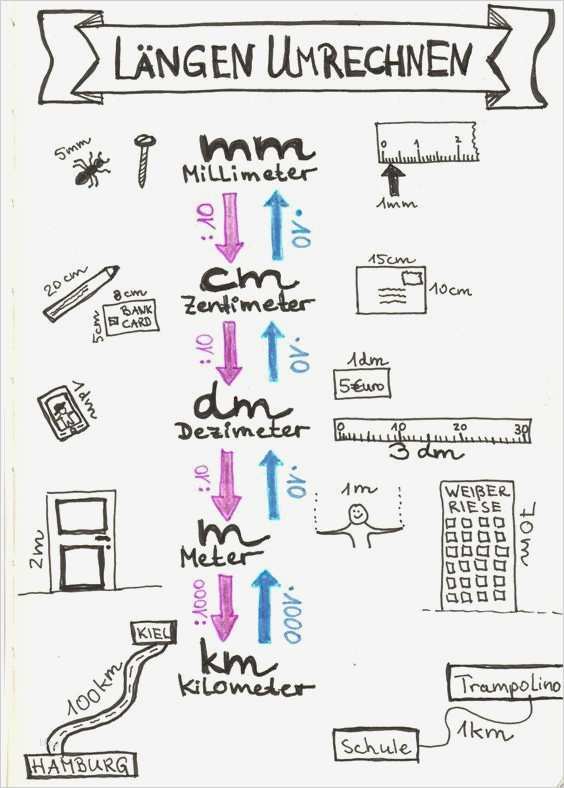 LÄNGEN UMRECHNEN
5mm
mm
Millimeter
0 1 2
1mm
:10
·10
20cm
8cm
5cm
BANK
CARD
cm
Zentimeter
15cm
10cm
:10
·10
1dm
1dm
5€uro
dm
Dezimeter
0 10 20 30
3 dm
:10
·10
2m
m
Meter
1m
WEIßER
RIESE
70m
:1000
·1000
KIEL
100km
HAMBURG
km
Kilometer
Trampolino
1km
Schule